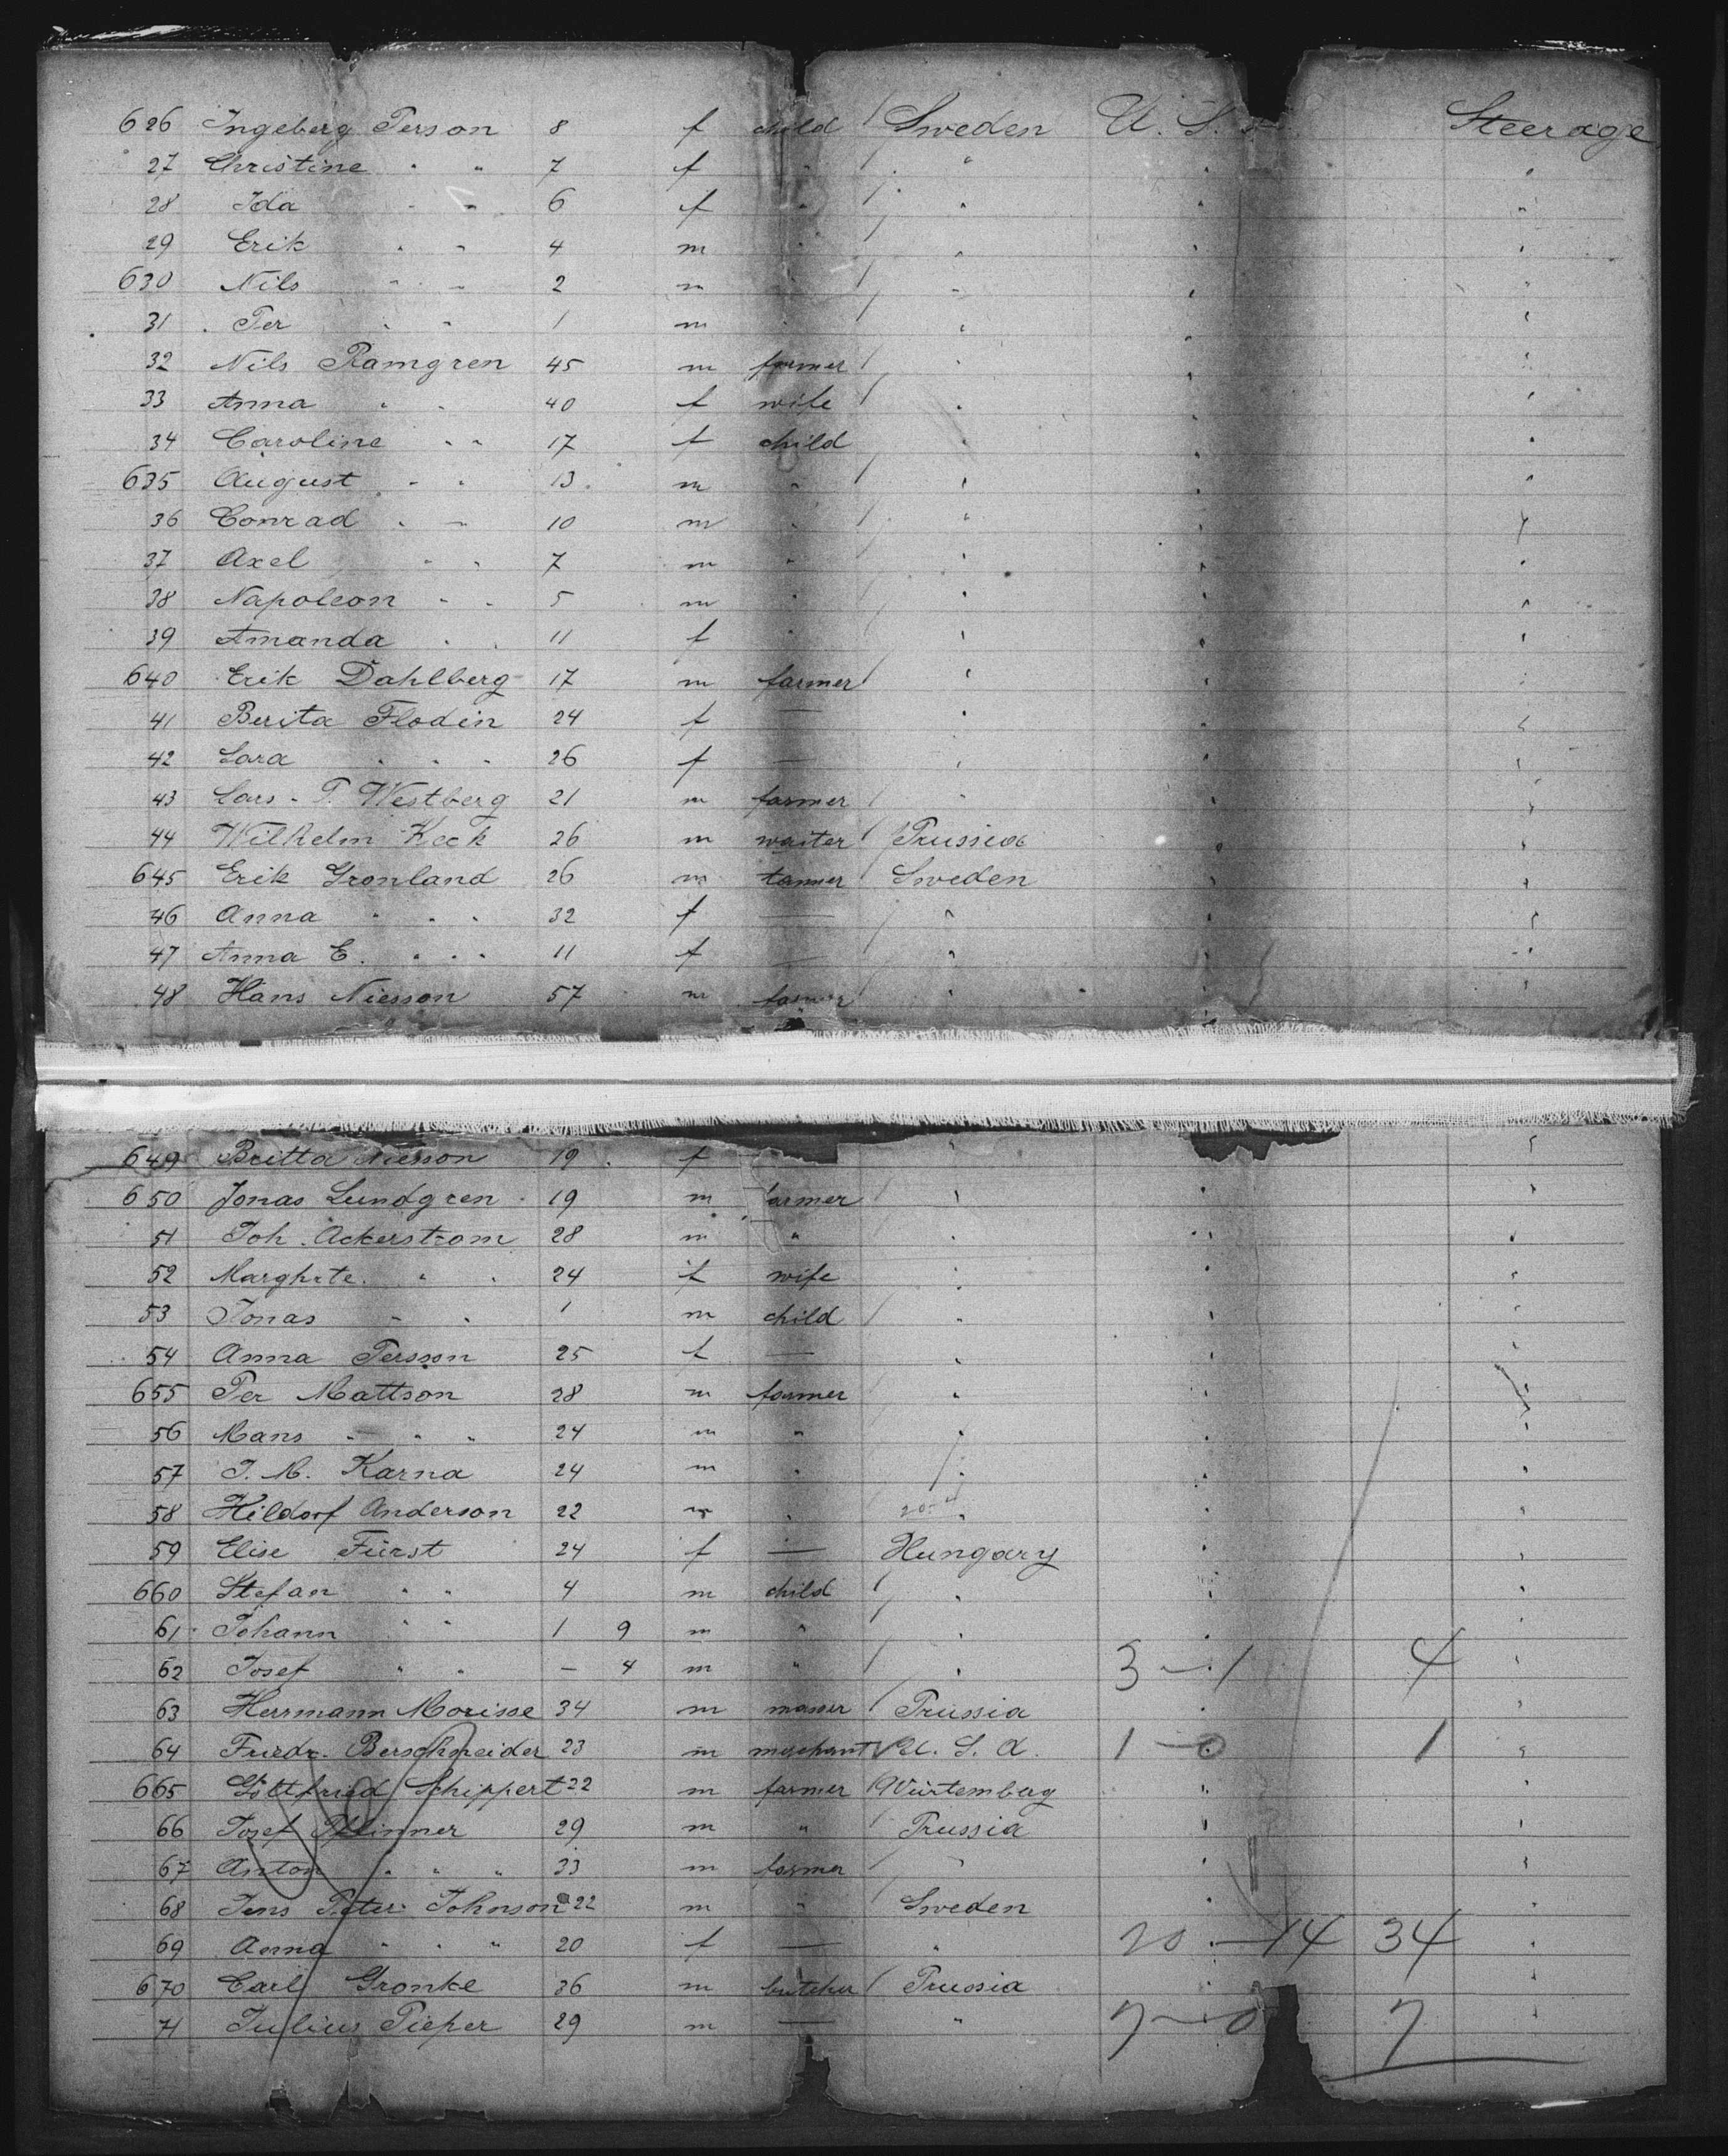 626 Ingeberg Person 8 f child / Sweden U. S. A. Steerage
27 Christine " " 7 f " / " " "
28 Ida " " 6 f " / " " "
29 Erik " " 4 m " / " " "
630 Nils " " 2 m " / " " "
31 Per " " 1 m " / " " "
32 Nils Ramgren 45 m farmer / " " "
33 Anna " " 40 f wife / " " "
34 Caroline " " 17 f child " " "
635 August " " 13 m " / " " "
36 Conrad " " 10 m " / " " "
37 Axel " " 7 m " / " " "
38 Napoleon " " 5 m " / " " "
39 Amanda " " 11 f " / " " "
640 Erik Dahlberg 17 m farmer / " " "
41 Berita Flodin 24 f — " " "
42 Sara " " " 26 f — " " "
43 Lars - P. Westberg 21 m farmer / " " "
44 Wilhelm Keck 26 m waiter / Prussia " "
645 Erik Gronland 26 m tanner Sweden " "
46 Anna " " " 32 f — / " " "
47 Anna E. " " " 11 f — / " " "
48 Hans Niesson 57 m farmer " " "
649 Britta Niesson 19 f " "
650 Jonas Lundgren 19 m farmer / " " "
51 Joh. Ackerstrom 28 m " " " "
52 Marghete " " 24 f wife " " "
53 Jonas " " 1 m child / " " "
54 Anna Persson 25 f — " " "
655 Per Mattson 28 m farmer / " " "
56 Mans " " " 24 m " / " " "
57 J. M. Karna 24 m " / " " "
58 Hildorf Anderson 22 m " 20-4 " "
59 Elise Fürst 24 f — Hungary " "
660 Stefan " " 4 m child / " " "
61 Johann " " 1 9 m " / " " "
62 Josef " " — 4 m " / " 3 - 1 4 "
63 Herrmann Morisse 34 m / Prussia " "
64 Friedr. Berschneider 23 m merchant / U. S. A. 1 - 0 1 "
665 Gottfried Schippert 22 m farmer / Würtemberg " "
66 Josef Pflinner 29 m " Prussia " "
67 Anton " " " 33 m farmer / " " "
68 Jens Peter Johnson 22 m " / Sweden " "
69 Anna " " " 20 f — " 20 - 14 34 "
670 Carl Gronke 36 m butcher / Prussia " "
71 Julius Pieper 29 m — " 7 - 0 7 "